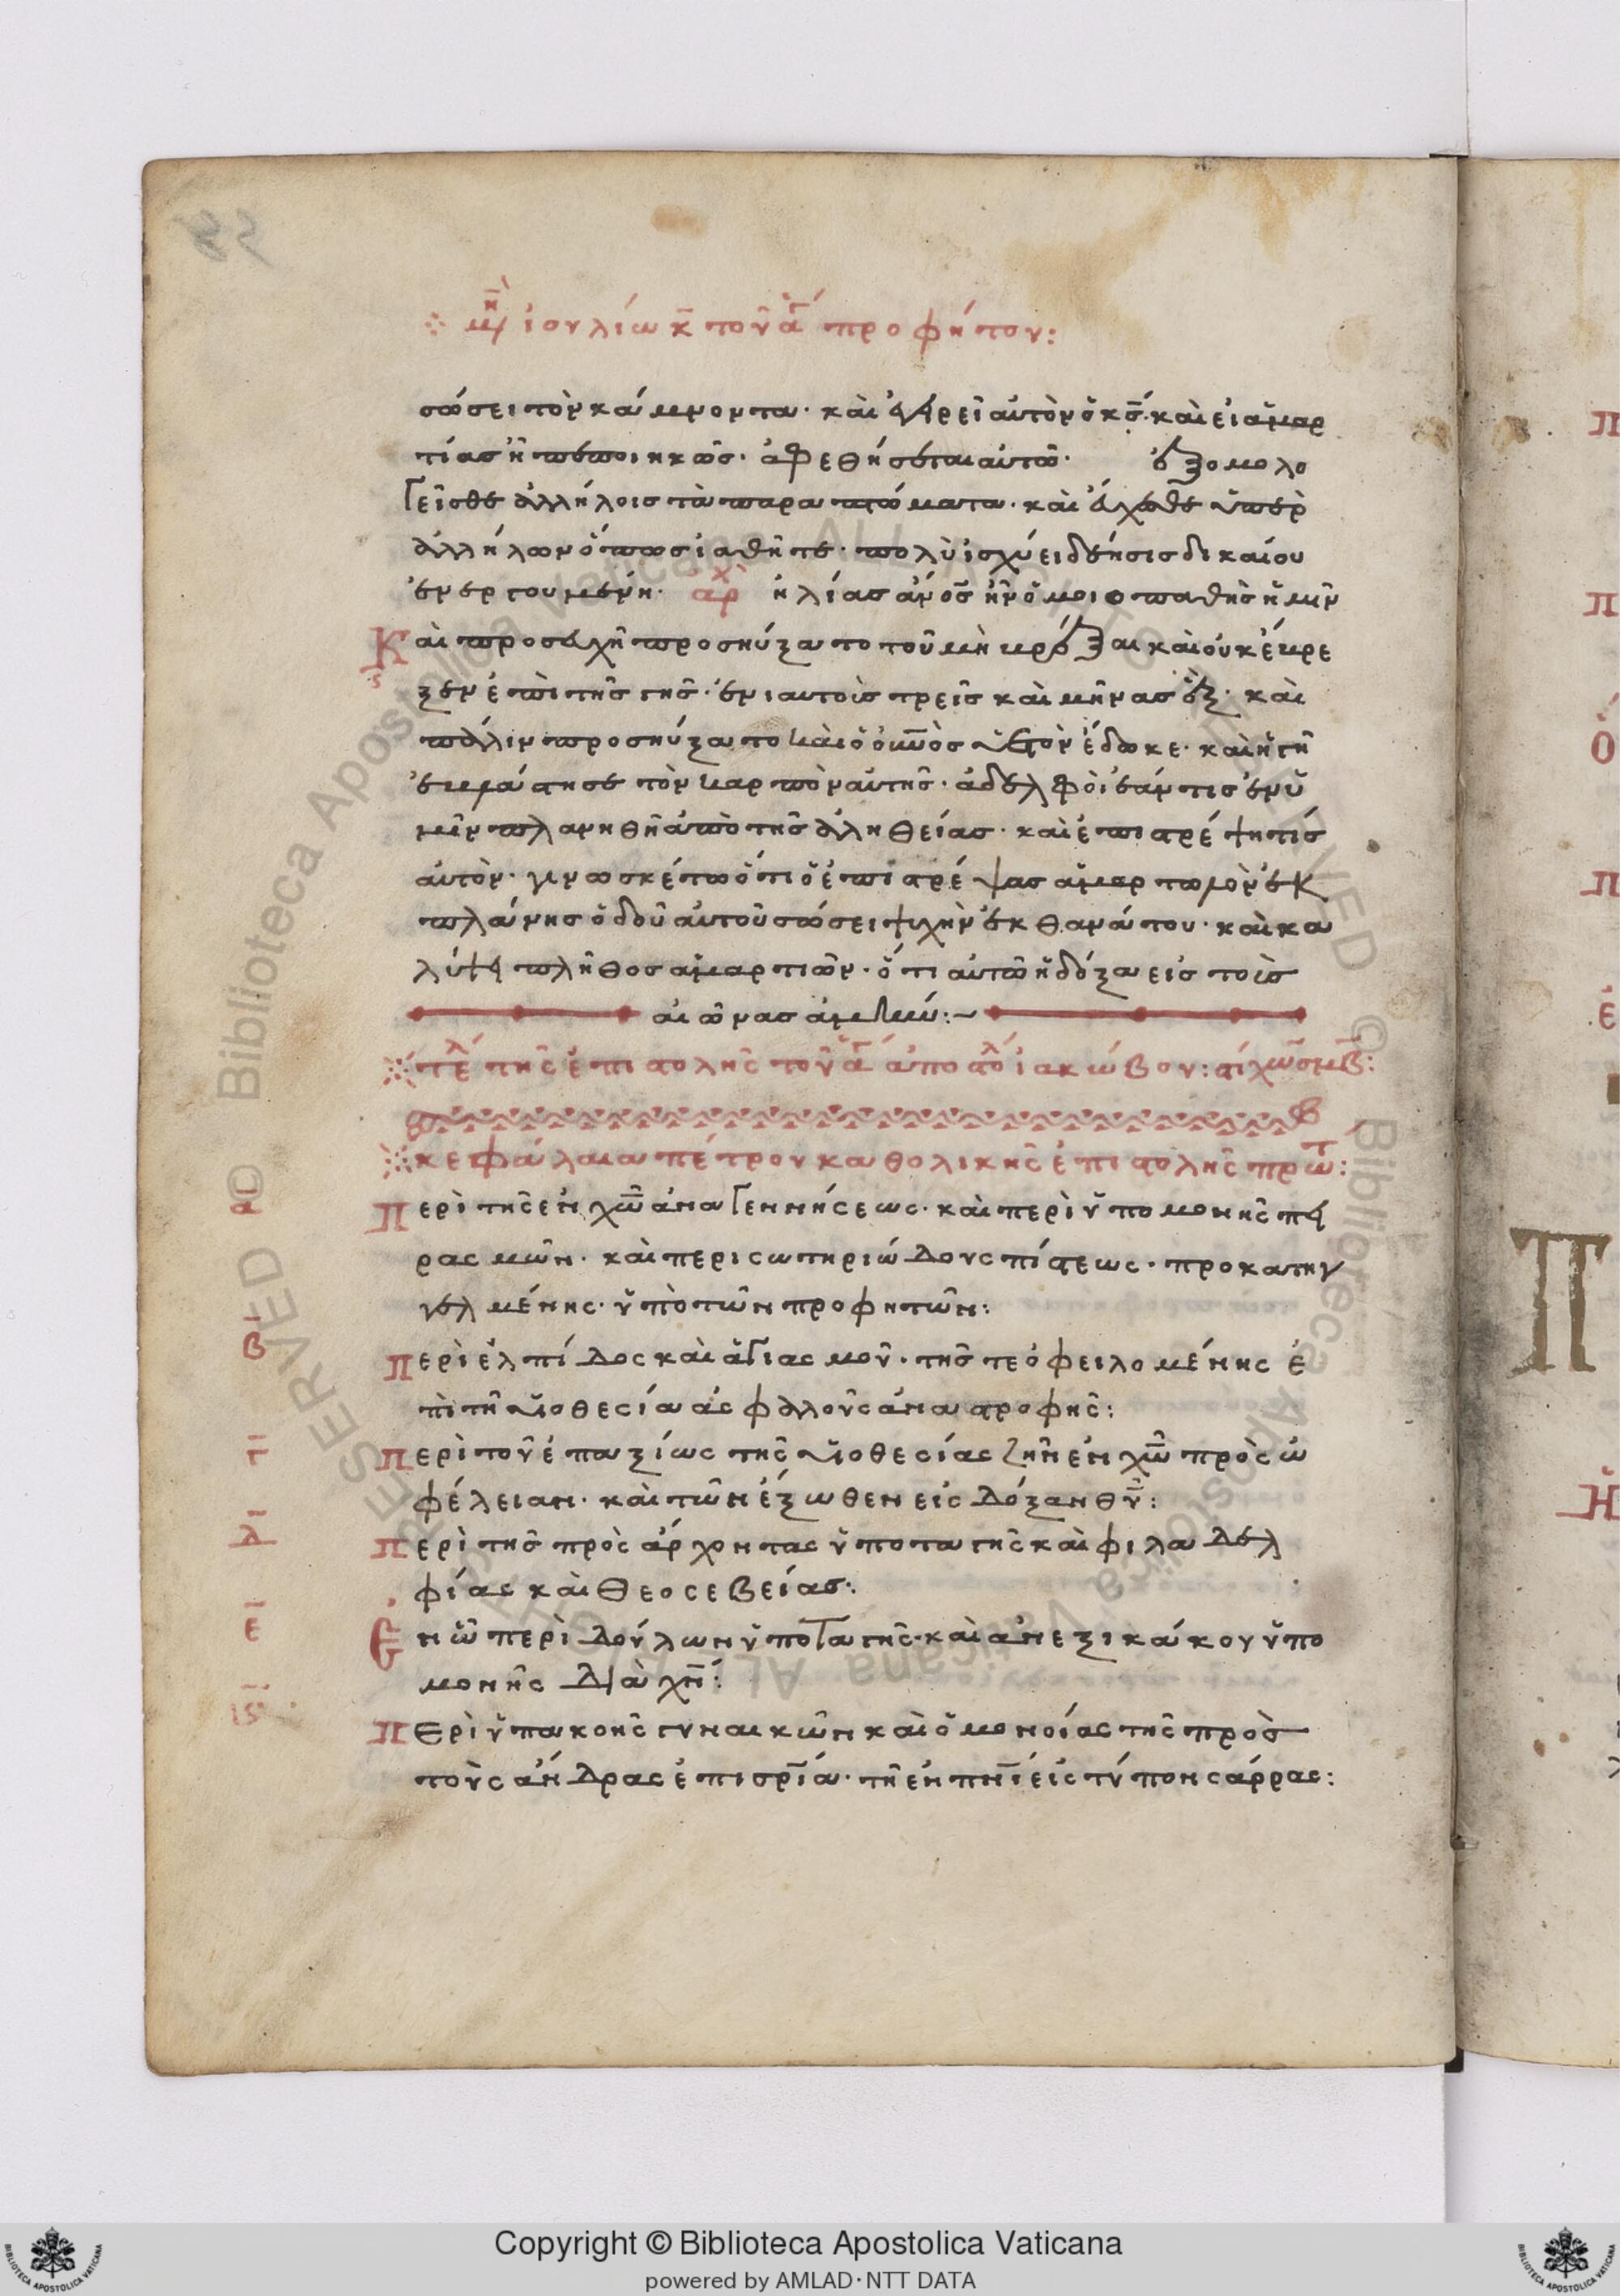 μη̅ ἰουλίω κ̅ τοῦ ἁγ προφήτου:
σώσει τὸν κάμνοντα· καὶ ἐγερεῖ αὐτὸν ὁ κ̅σ̅· καὶ εἰ ἁμαρ
τίασ ἦ πεποιηκῶσ· ἀφεθήσεται αὐτῶ· ἐξομολο
γεῖσθε ἀλλήλοισ τὰ παραπτώματα· καὶ εὔχεσθε ὑπὲρ
ἀλλήλων ὅπωσ ἰαθῆτε· πολὺ ἰσχύει δέησισ δικαίου
ἐνεργουμένη· ἀρχ ἠλίασ ἄνο̅σ̅ ἦν ὁμοιοπαθὴσ ἡμῖν
Καὶ προσευχῆ προσηύξατο τοῦ μὴ βρέξαι καὶ οὐκ ἔβρε
ξεν ἐπὶ τῆσ γῆσ· ἐνιαυτοὺσ τρεῖσ καὶ μῆνασ ἓξ· καὶ
πάλιν προσηύξατο καὶ ὁ οὐν̅ὸσ ὑετὸν ἔδωκε· καὶ ἡ γῆ
ἐβλάστησε τὸν καρπὸν αὐτῆσ· ἀδελφοὶ ἐάν τισ ἐν ὑ
μῖν πλανηθῆ ἀπὸ τῆσ ἀληθείασ· καὶ ἐπιστρέψη τίσ
αὐτὸν· γινωσκέτω ὅτι ὁ ἐπιστρέψασ ἁμαρτωλὸν ἐκ
πλάνησ ὁδοῦ αὐτοῦ σώσει ψυχὴν ἐκ θανάτου· καὶ κα
λύψει πλῆθοσ ἁμαρτιῶν· ὅτι αὐτῶ ἡ δόξα εἰσ τοὺσ
αἰῶνασ ἀμήν:~
τέλ τῆς ἐπιστολῆς τοῦ ἁγ ἀποστολ ἰακώβου: στίχων σμβ̅:
κεφάλαια πέτρου καθολικῆς ἐπιστολῆς πρωτ:
α̅ Περὶ τῆς ἐν χ̅ω̅ ἀναγεννήσεως· καὶ περὶ ὑπομονῆς πει
ρασμῶν· καὶ περὶ σωτηριώδους πίστεως· προκατηγ
γελμένης· ὑπὸ τῶν προφητῶν:
β̅ Περὶ ἐλπίδος καὶ ἁγιασμοῦ· τῆσ τε ὀφειλομένης ἐ
πὶ τῆ υἱοθεσία ἀσφαλοῦς ἀναστροφῆς:
γ̅ Περὶ τοῦ ἐπαξίως τῆς υἱοθεσίας ζῆν ἐν χ̅ω̅ πρὸς ὠ
φέλειαν· καὶ τῶν ἔξωθεν εἰς δόξαν θ̅υ̅:
δ̅ Περὶ τῆσ πρὸς ἄρχοντας ὑποταγῆς καὶ φιλαδελ
φίας καὶ θεοσεβείασ:
ε̅ Ἐν ὧ περὶ δούλων ὑποταγῆς· καὶ ἀνεξικάκου ὑπο
μονῆς διὰ χ̅ν̅:
ϛ̅ Περὶ ὑπακοῆς γυναικῶν καὶ ὁμονοίας τῆς πρὸσ
τοὺς ἄνδρας ἐπὶ σρ̅ία· τῆ ἐν πν̅ι εἰς τύπον σάρρας: